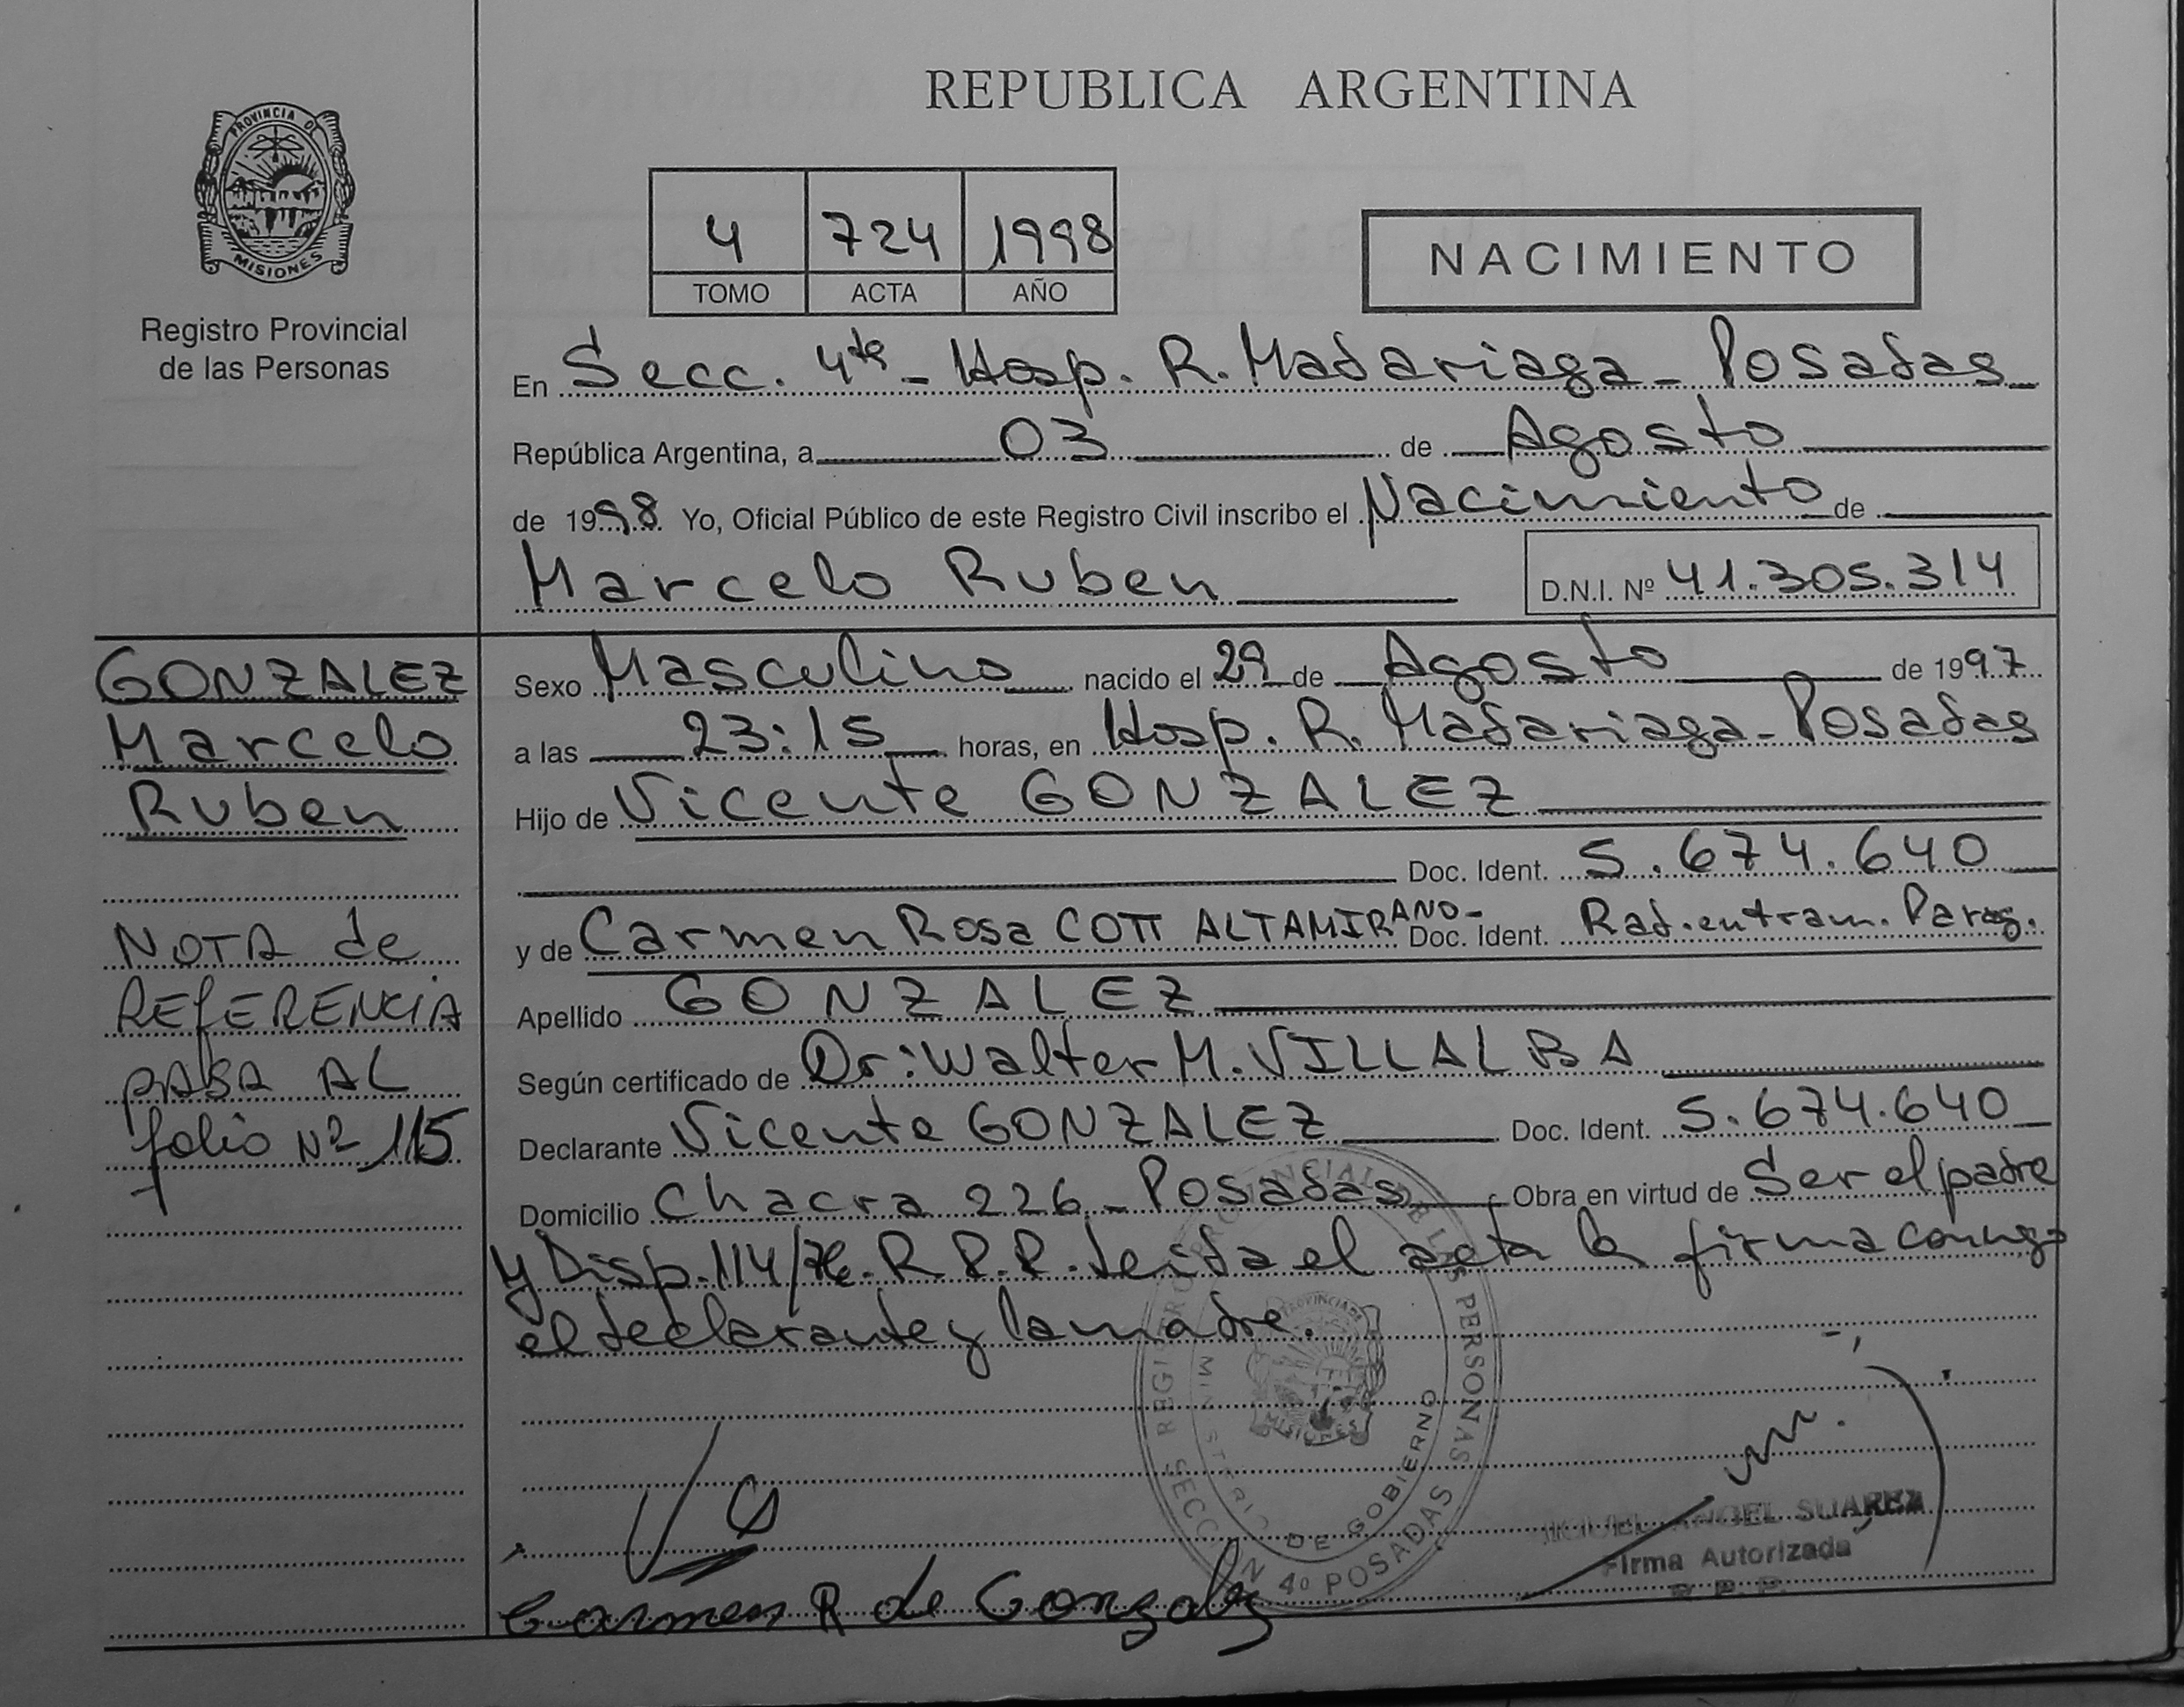 REPUBLICA ARGENTINA
PROVINCIA DE
MISIONES
Registro Provincial
de las Personas
4 724 1998
TOMO ACTA AÑO
NACIMIENTO
En Secc. 4ta - Hosp. R. Madariaga - Posadas
República Argentina, a 03 de Agosto
de 1998 Yo, Oficial Público de este Registro Civil inscribo el Nacimiento de
Marcelo Ruben D.N.I. Nº 41.305.314
GONZALEZ
Marcelo
Ruben
NOTA de
REFERENCIA
PASA AL
folio Nº 115
Sexo Masculino nacido el 29 de Agosto de 1997
a las 23:15 horas, en Hosp. R. Madariaga - Posadas
Hijo de Vicente GONZALEZ
Doc. Ident. 5.674.640
y de Carmen Rosa COTT ALTAMIRANO - Doc. Ident. Rad. en tram. Parag.
Apellido GONZALEZ
Según certificado de Dr: Walter M. VILLALBA
Declarante Vicente GONZALEZ Doc. Ident. 5.674.640
Domicilio Chacra 226 - Posadas Obra en virtud de Ser el padre
y Disp. 114/76. R.P.P. Leida el acta la firma conmigo
el declarante y la madre.
REGISTRO PROVINCIAL DE LAS PERSONAS
MINISTERIO DE GOBIERNO
PROVINCIA DE
MISIONES
SECCION 4º POSADAS
Carmen R de Gonzalez
MIGUEL ANGEL SUAREZ
Firma Autorizada
R. P. P.